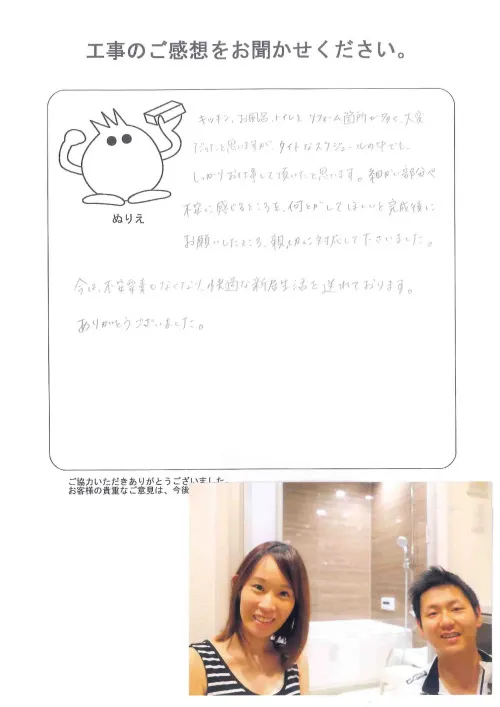 工事のご感想をお聞かせください。
ぬりえ
キッチン、お風呂、トイレと リフォーム箇所が多く、大変
だったと思いますが、タイトなスケジュールの中でも、
しっかりお仕事して頂いたと思います。細かい部分や
不安に感じるところを、何とかしてほしいと完成後に
お願いしたところ、親切に対応して下さいました。
今は、不安要素もなくなり、快適な新居生活を送れております。
ありがとうございました。
ご協力いただきありがとうございました。
お客様の貴重なご意見は、今後